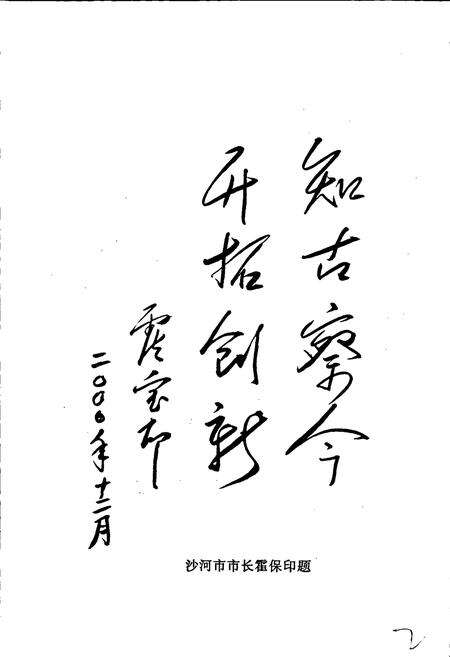 知古察今
开拓创新
霍宝印
二000年十二月
沙河市市长霍保印题
2